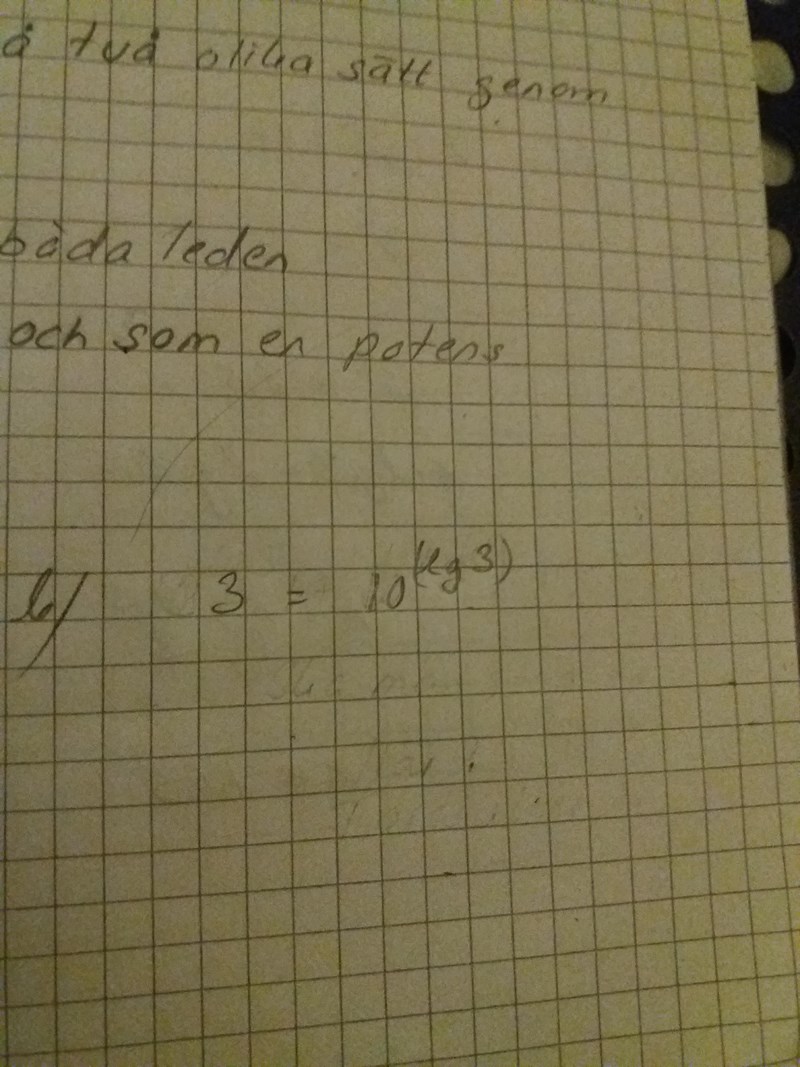 å två olika sätt genom
båda leden
och som en potens
b/ 3 = 10^(lg 3)